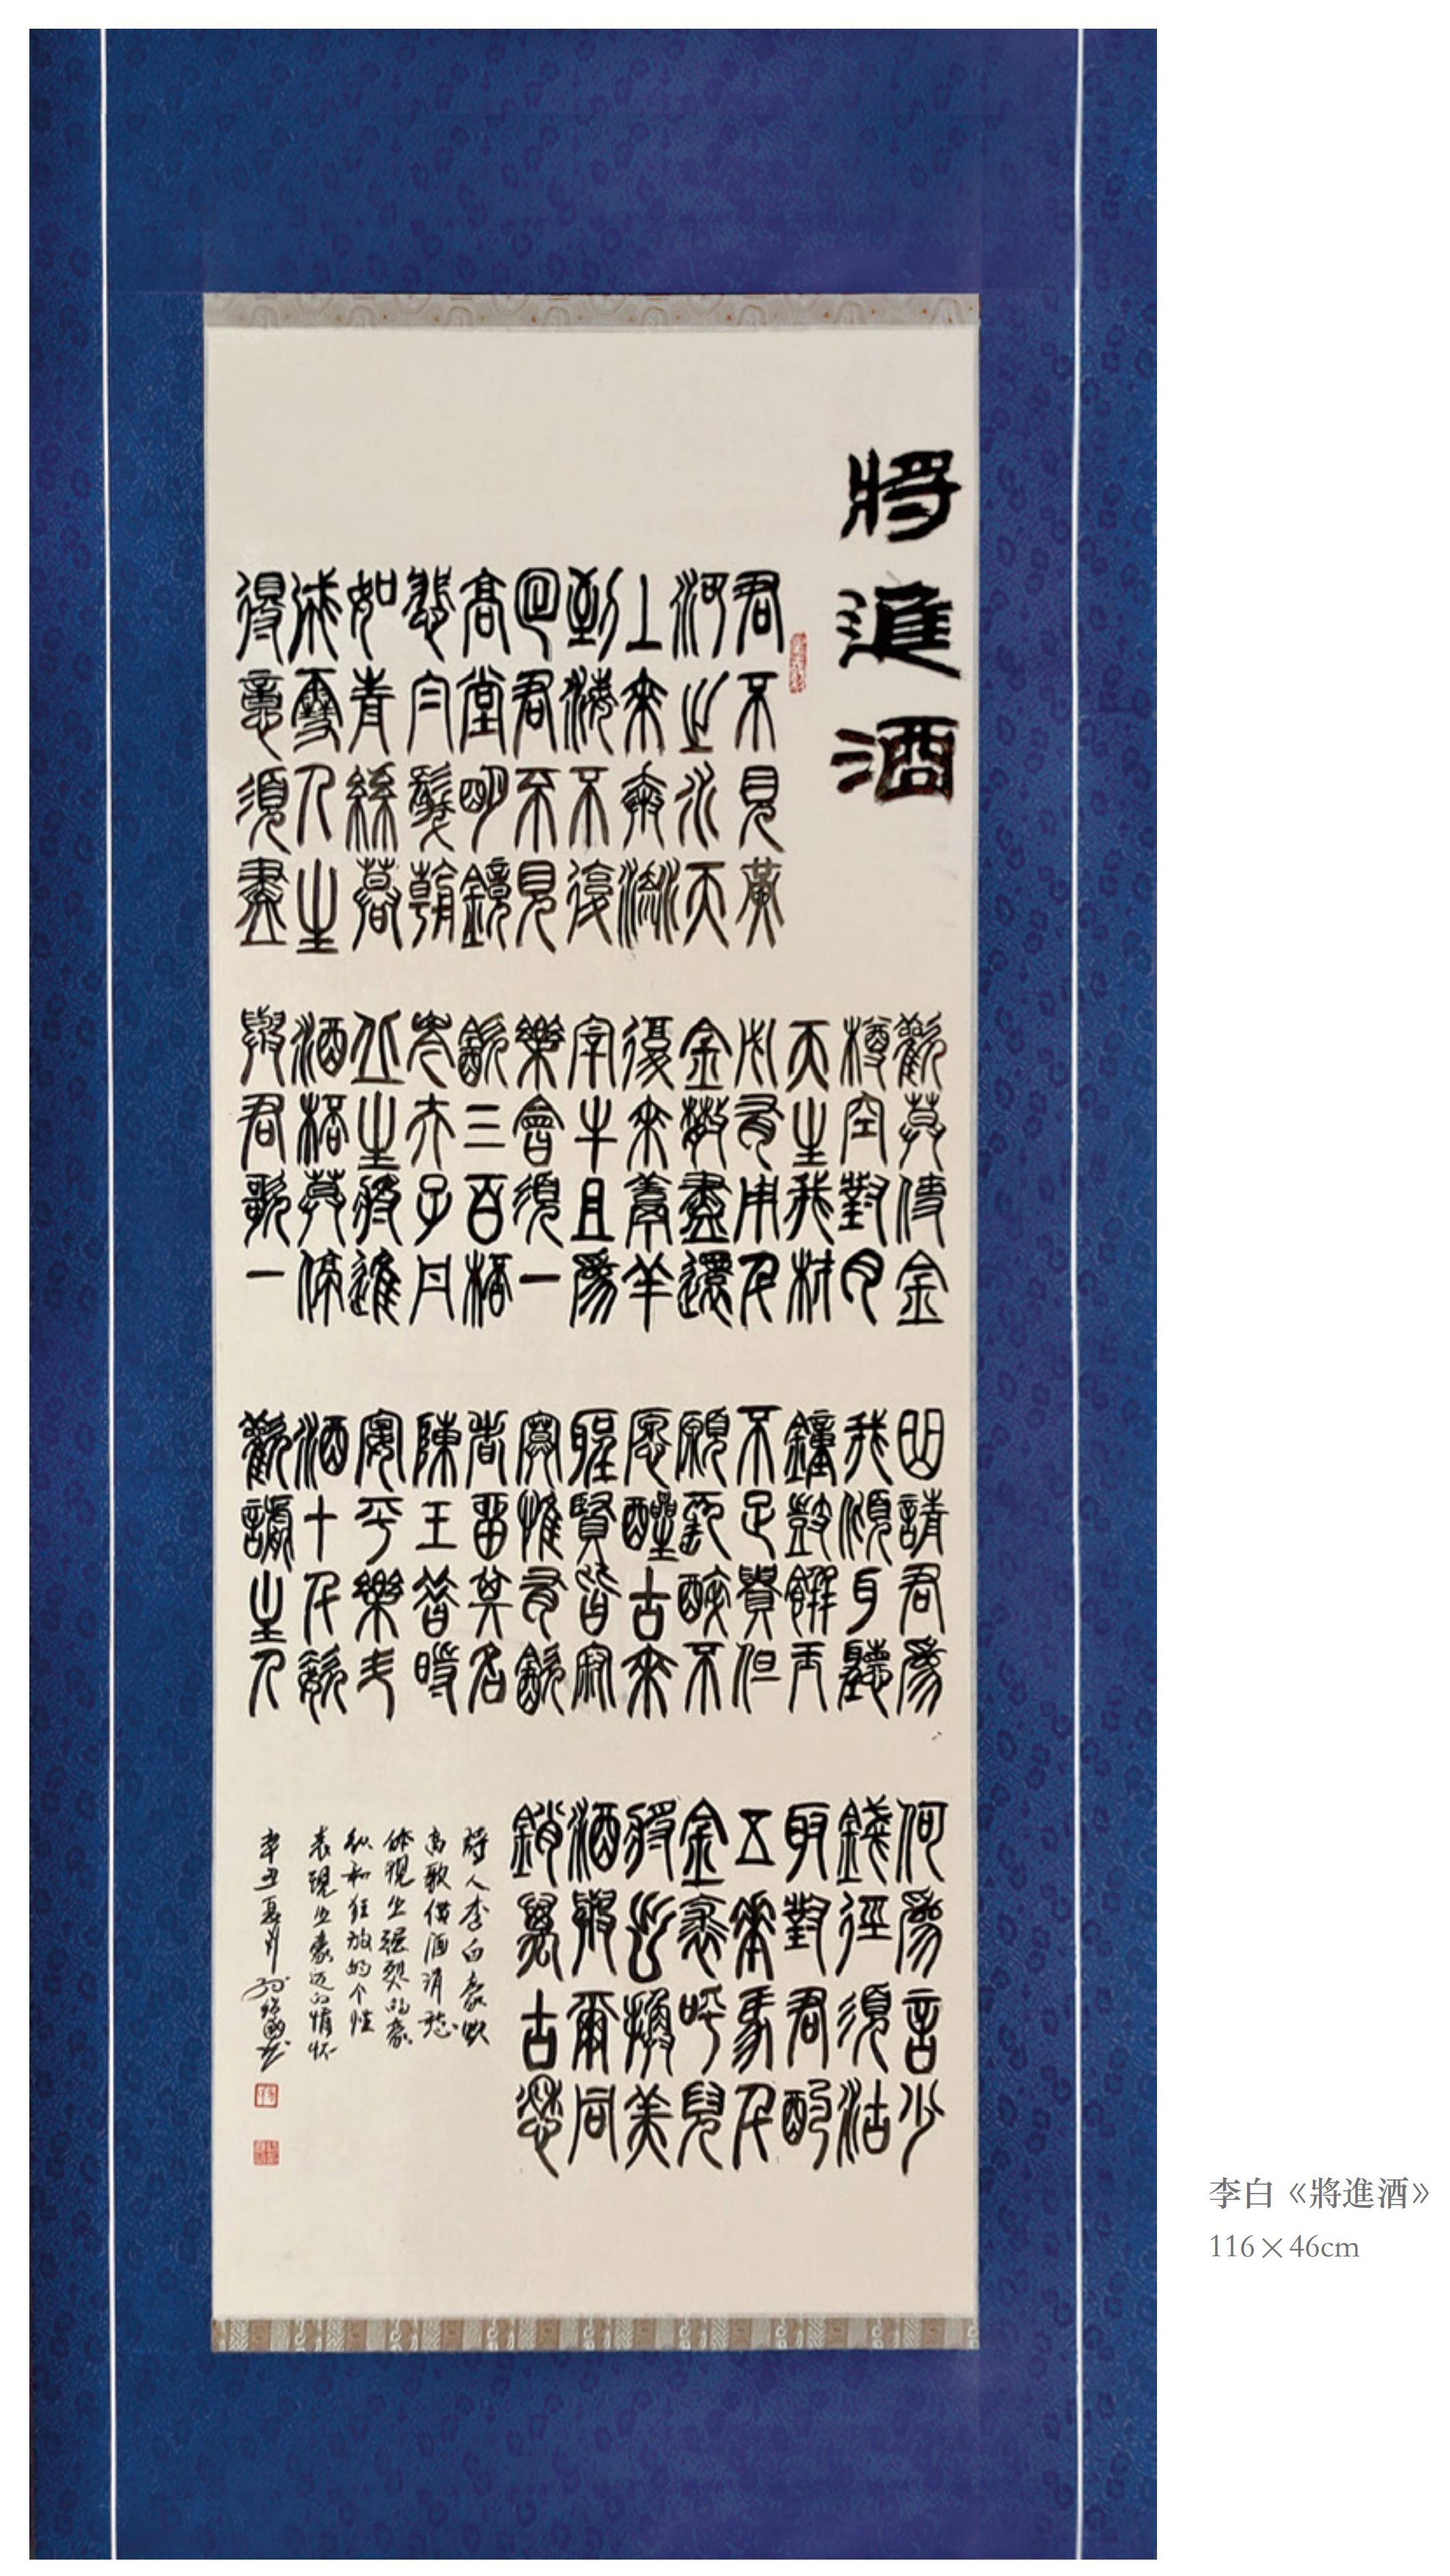 將進酒
君不見黃
河之水天
上來奔流
到海不復
回君不見
高堂明鏡
悲白髮朝
如青絲暮
成雪人生
得意須盡
歡莫使金
樽空對月
天生我材
必有用千
金散盡還
復來烹羊
宰牛且爲
樂會須一
飲三百桮
岑夫子丹
丘生將進
酒桮莫停
與君歌一
曲請君爲
我傾耳聽
鐘鼓饌玉
不足貴但
願長醉不
愿醒古來
聖賢皆寂
寞惟有飲
者留其名
陳王昔時
宴平樂斗
酒十千恣
歡謔主人
何爲言少
錢徑須沽
取對君酌
五花馬千
金裘呼兒
將出換美
酒與爾同
銷萬古愁
詩人李白豪飲
高歌借酒消愁
体現出强烈的豪
纵和狂放的个性
表現出豪迈的情怀
辛丑夏月
李白《將進酒》
116×46cm